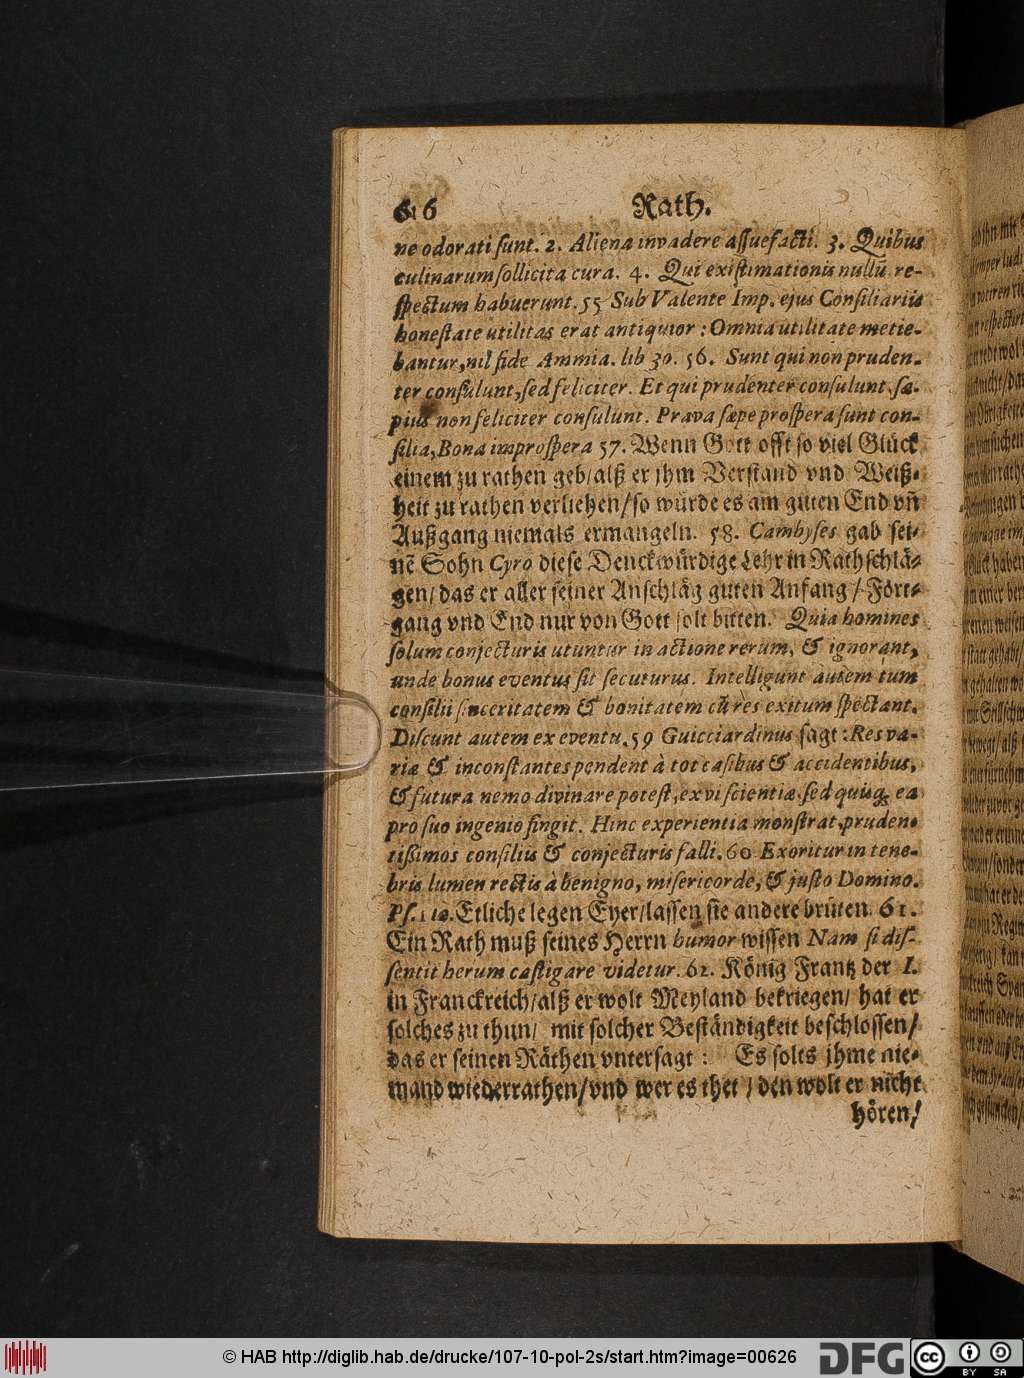 616 Rath.
ne odorati ſunt. 2. Aliena invadere aſſuefacti. 3. Quibus
culinarum ſollicita cura. 4. Qui exiſtimationis nullū re-
ſpectum habuerunt. 55 Sub Valente Imp. ejus Conſiliariis
honeſtate utilitas erat antiquior: Omnia utilitate metie-
bantur, nil fide Ammia. lib 30. 56. Sunt qui non pruden-
ter conſulunt, ſed feliciter. Et qui prudenter conſulunt, ſæ-
pius non feliciter conſulunt. Prava ſæpe proſpera ſunt con-
ſilia, Bona improſpera 57. Wenn Gott offt ſo viel Glück
einem zu rathen geb/ alß er jhm Verſtand vnd Weiß-
heit zu rathen verliehen/ ſo würde es am guten End vn̄
Außgang niemals ermangeln. 58. Cambyſes gab ſei-
nē Sohn Cyro dieſe Denckwürdige Lehr in Rathſchlä-
gen/ das er aller ſeiner Anſchläg guten Anfang/ Fort-
gang vnd End nur von Gott ſolt bitten. Quia homines
ſolum conjecturis utuntur in actione rerum, & ignorant,
unde bonus eventus ſit ſecuturus. Intelligunt autem tum
conſilii ſinceritatem & bonitatem cū res exitum ſpectant.
Diſcunt autem ex eventu. 59 Guicciardinus ſagt: Res va-
riæ & inconſtantes pendent à tot caſibus & accidentibus,
& futura nemo divinare poteſt, ex vi ſcientiæ, ſed quisq; ea
pro ſuo ingenio fingit. Hinc experientia monſtrat, pruden-
tiſſimos conſiliis & conjecturis falli. 60 Exoritur in tene-
bris lumen rectis à benigno, miſericorde, & juſto Domino.
Pſ. 112. Etliche legen Eyer/ laſſen ſie andere brüten. 61.
Ein Rath muß ſeines Herrn humor wiſſen Nam ſi diſ-
ſentit herum caſtigare videtur. 62. König Frantz der I.
in Franckreich/ alß er wolt Meyland bekriegen/ hat er
ſolches zu thun/ mit ſolcher Beſtändigkeit beſchloſſen/
das er ſeinen Räthen vnterſagt: Es ſolts jhme nie-
mand wiederrathen/ vnd wer es thet/ den wolt er nicht
hören/
© HAB http://diglib.hab.de/drucke/107-10-pol-2s/start.htm?image=00626
DFG
cc BY SA